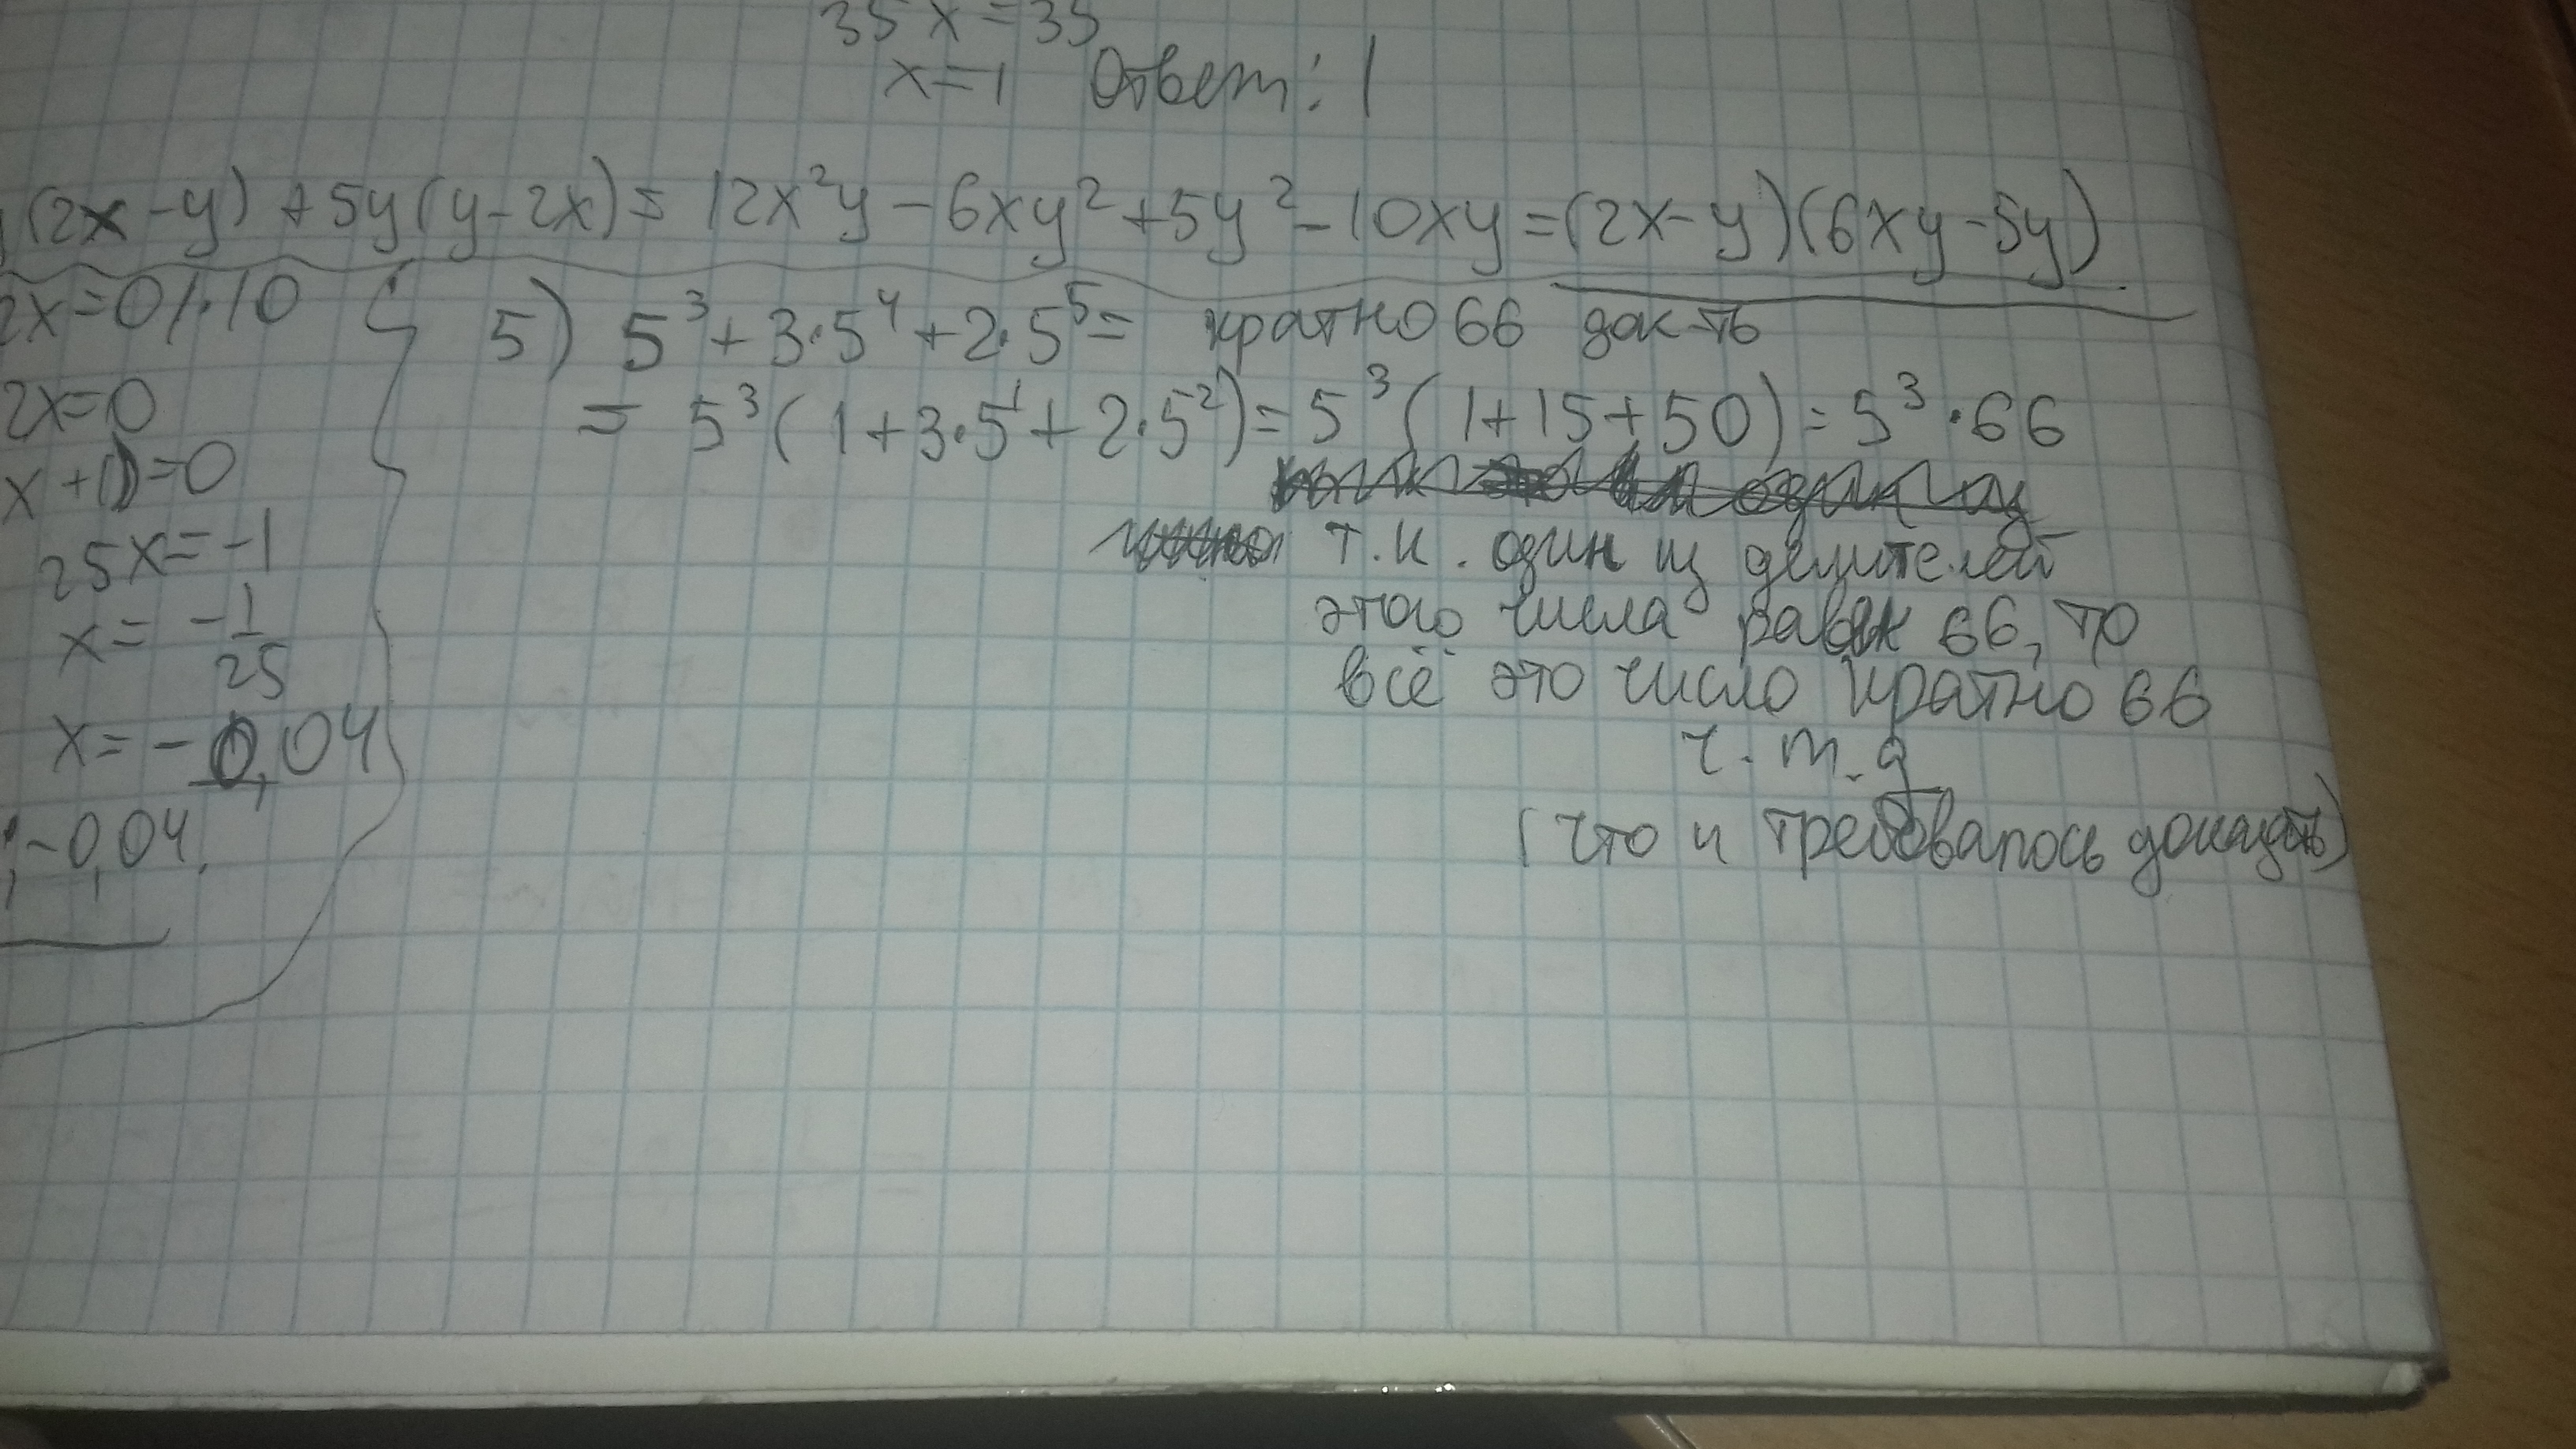 35x=35
x=1 Ответ: 1
(2x-y)+5y(y-2x)=12x²y-6xy²+5y²-10xy=(2x-y)(6xy-5y)
2x=0 /·10
2x=0
x+1)=0
25x=-1
x=-1/25
x=-0,04
; -0,04.
5) 5³+3·5⁴+2·5⁵= кратно 66 док-ть
=5³(1+3·5¹+2·5²)=5³(1+15+50)=5³·66
т.к. один из делителей
этого числа равен 66, то
всё это число кратно 66
ч.т.д
(что и требовалось доказать)